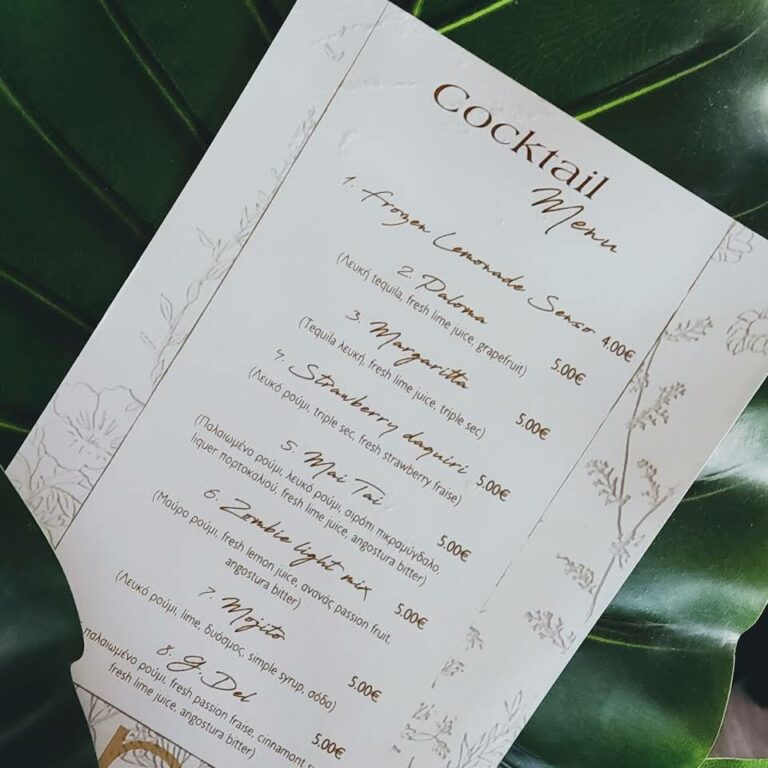 Cocktail
Menu
1. Frozen Lemonade Senso 4.00€
2. Paloma
(Λευκή tequila, fresh lime juice, grapefruit) 5.00€
3. Margaritta
(Tequila λευκή, fresh lime juice, triple sec) 5.00€
4. Strawberry daquiri
(Λευκό ρούμι, triple sec, fresh strawberry fraise) 5.00€
5. Mai Tai
(Παλαιωμένο ρούμι, λευκό ρούμι, σιρόπι πικραμύγδαλο,
liquer πορτοκαλιού, fresh lime juice, angostura bitter) 5.00€
6. Zombie light mix
(Μαύρο ρούμι, fresh lemon juice, ανανάς passion fruit,
angostura bitter) 5.00€
7. Mojito
(Λευκό ρούμι, lime, δυόσμος, simple syrup, σόδα) 5.00€
8. G. Del
παλαιωμένο ρούμι, fresh passion fraise, cinnamont
fresh lime juice, angostura bitter) 5.00€